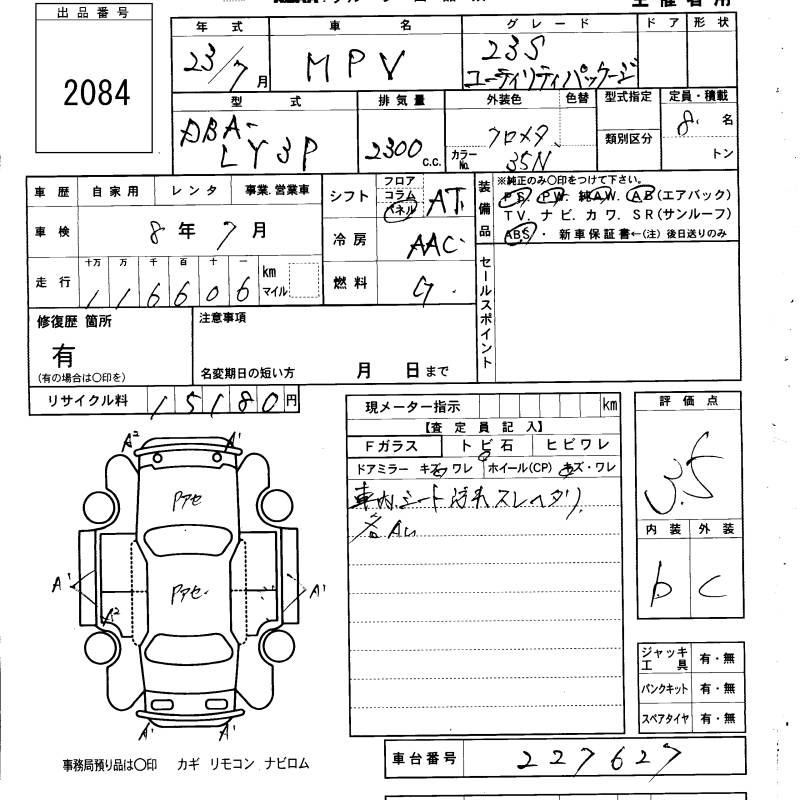 出品番号
2084
年式 車名 グレード ドア 形状
23/7月 MPV 23S
ユーティリティパッケージ
型式 排気量 外装色 色替 型式指定 定員・積載
DBA-
LY3P 2300 c.c. クロメタ 類別区分 8 名
カラーNo. 35N トン
車歴 自家用 レンタ 事業.営業車
車検 8年 7月
走行 十万 万 千 百 十 一
116606 km マイル
シフト フロア コラム パネル AT
冷房 AAC
燃料 G
装備品 ※純正のみ○印をつけて下さい。
PS. PW. 純AW. AB(エアバック)
TV. ナビ. カワ. SR(サンルーフ)
ABS・ 新車保証書←(注)後日送りのみ
セールスポイント
修復歴 箇所
有
(有の場合は○印を)
注意事項
名変期日の短い方 月 日まで
リサイクル料 15180円
現メーター指示 km
【査定員記入】
Fガラス トビ石 ヒビワレ
ドアミラー キズ ワレ ホイール(CP) キズ・ワレ
車内シート汚れスレヘタリ
評価点
3.5
内装 外装
b C
A² A¹
Pアセ
Pアセ
A¹ A² A¹
A¹ A¹
ジャッキ工具 有・無
パンクキット 有・無
スペアタイヤ 有・無
車台番号 227627
事務局預り品は○印 カギ リモコン ナビロム